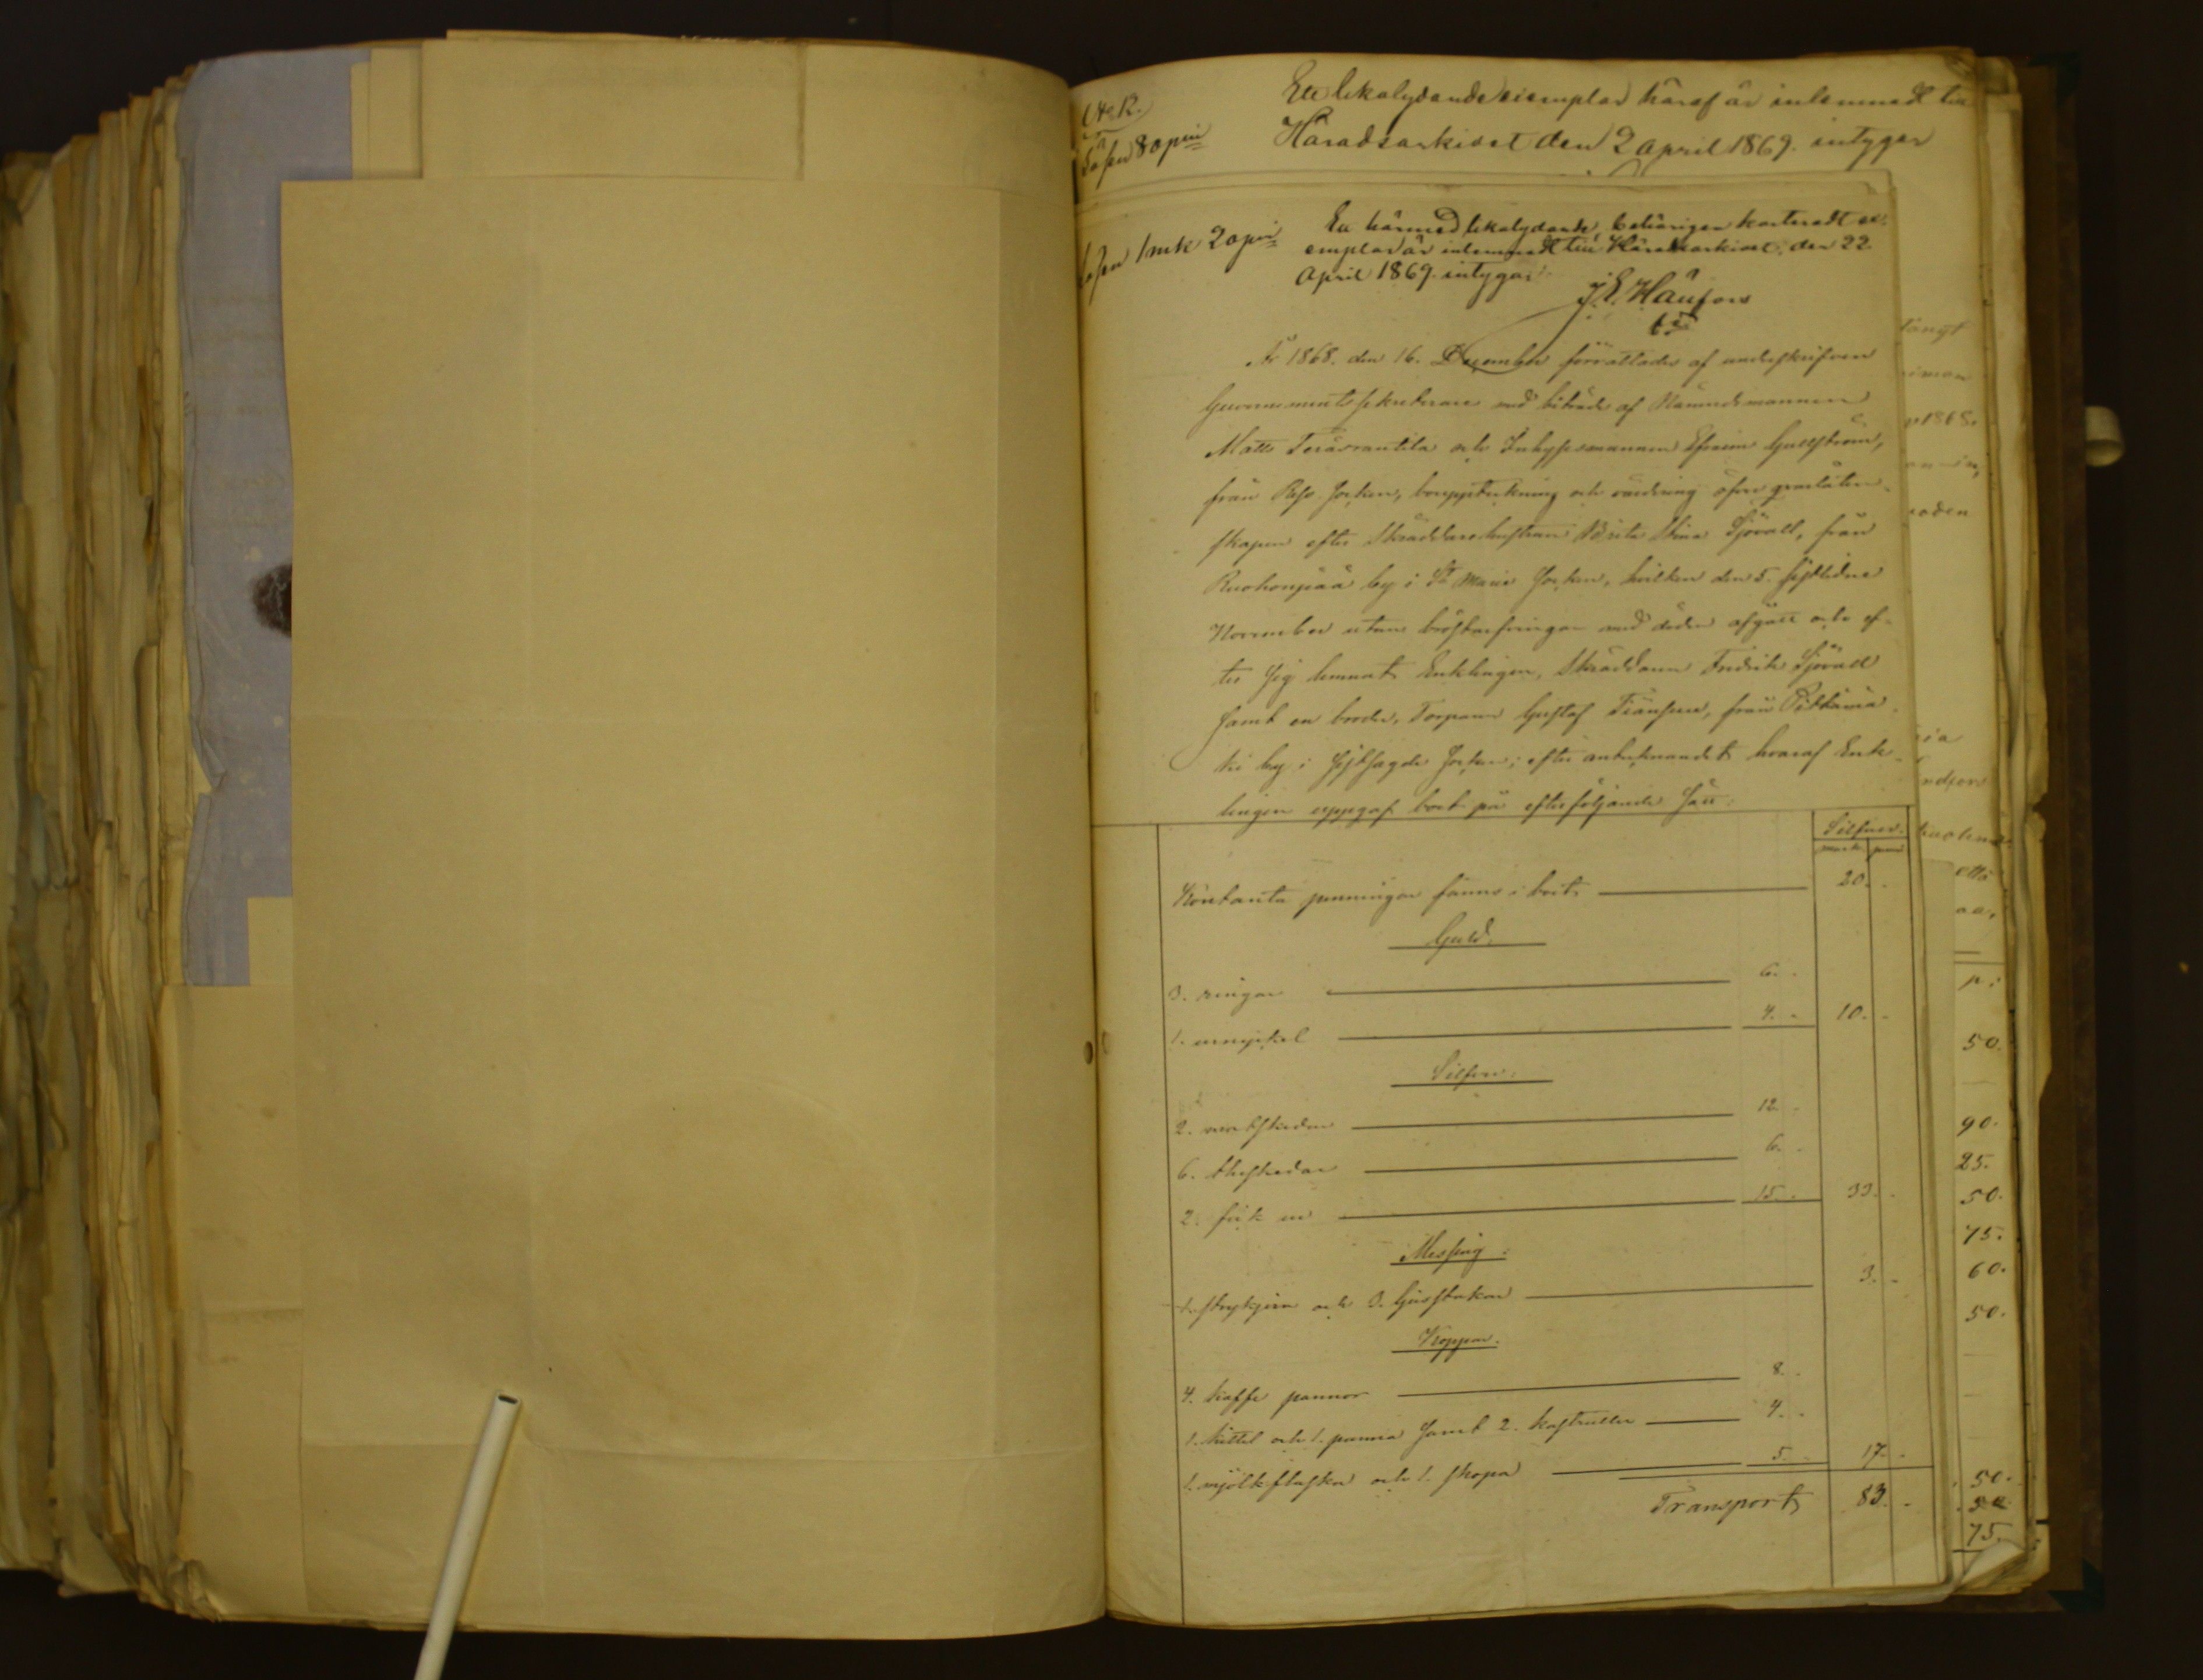 Ett likalydande exemplar häraf är inlemnadt till
Häradsarkivet den 2 April 1869. intygar
Lösen 80 pni
Lösen 1 mk 20 pni
Ett härmed likalydande, behörigen karteradt ex-
emplar är inlemnadt till Häradsarkivet, den 22
April 1869. intygar
År 1868. den 16. December förrättades af undertecknad
Guvernementssekreterare med biträde af Nämndemannen
Matts och Inhysesmannen Efraim Gullström,
från Socken, bouppteckning och värdering öfver qvarlåten-
skapen efter Skräddarehustrun Brita Stina Sjövall, från
Ruohonpää by i St Marie Socken, hvilken den 5. sistlidne
November utan bröstarfvingar med döden afgått och ef-
ter sig lemnat Enklingen, Skräddaren Fredrik Sjövall
samt en broder, Torparen Gustaf från Pitkämä-
ki by i sistsagde Socken; efter anteknandet hvaraf Enk-
lingen uppgaf boet på efterföljande sätt:
Silfver.
mark. pni
Kontanta penningar fanns i boet 20. -
Guld.
3. ringar 6. -
1. urnyckel 4. - 10. -
Silfver:
2. matskedar 12. -
6. theskedar 6. -
2. fick ur 15. - 33. -
Messing:
1. strykjern och 3. ljusstakar 3. -
Koppar.
4. kaffe pannor 8. -
1. kittel och 1. panna samt 2. kastruller 4. -
1. mjölkflaska och 1. skopa 5. - 17. -
Transport 83. -
p:
50.
90.
25.
50.
75.
60.
50.
50.
75.